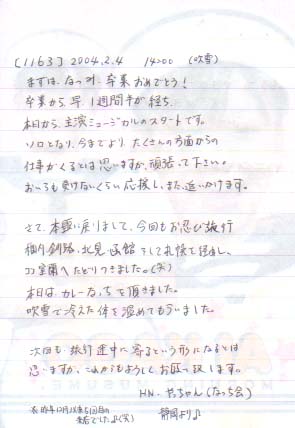 [1163] 2004.2.4 14:00 (吹雪)
まずは、なっち、卒業おめでとう!
卒業から、早1週間半が経ち、
本日から、主演ミュージカルのスタートです。
ソロとなり、今までより、たくさんの方面からの
仕事がくるとは思いますが、頑張って下さい。
おいらも負けないくらい応援し、また、追いかけます。
さて、本題に戻りまして、今回もお忍び旅行
釧路、北見、函館 そして札幌を経由し、
ココ室蘭へたどりつきました。(笑)
本日は、カレーなっちを頂きました。
吹雪で冷えた体を温めてもらいました。
次回も、旅行途中に寄るという形になるとは
思いますが、これからもよろしくお願い致します。
HN. やっちゃん(なっち会)
静岡より♪
昨年12月以来5回目の
来店でした♪(笑)